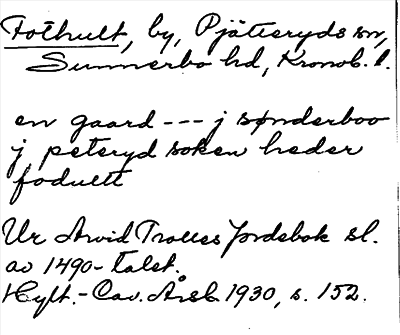 Fothult, by, Pjätteryds sn,
Sunnerbo hd, Kronob. l.
en gaard --- j sønderboo
j peteryd soken heder
fodultt
Ur Arvid Trolles Jordebok sl.
av 1490-talet.
Hylt.-Cav. Årsb. 1930, s. 152.